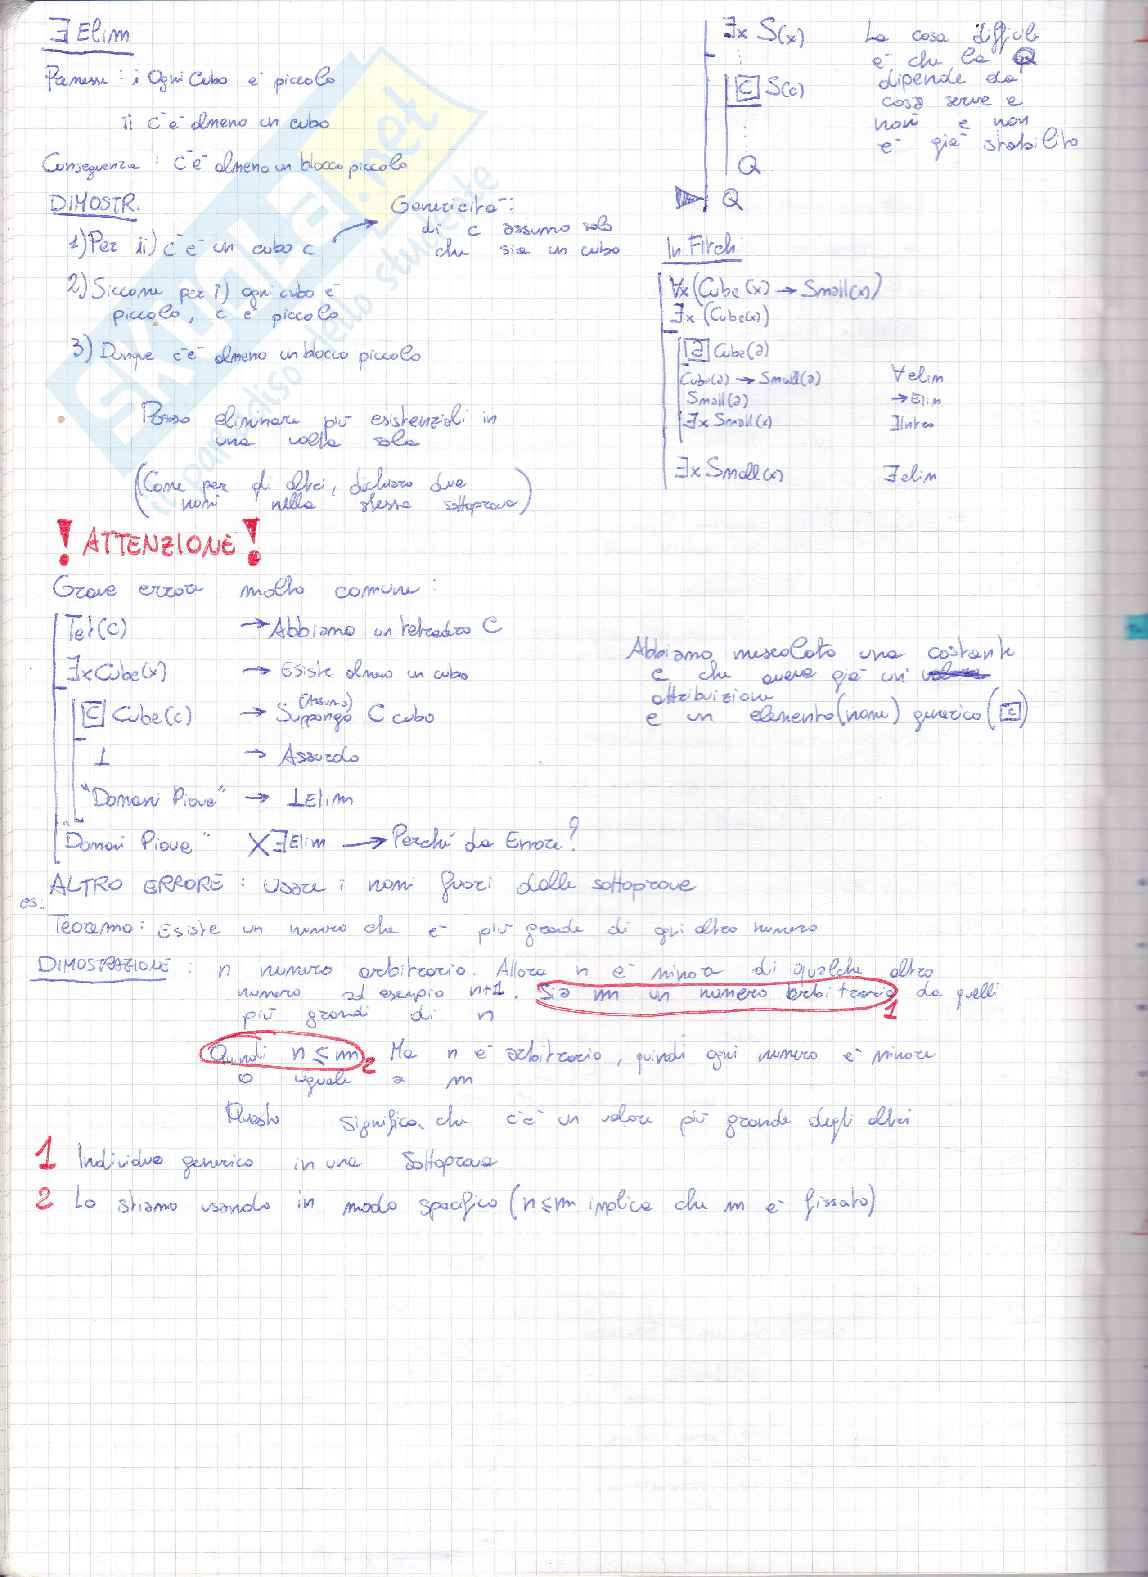 ∃ Elim
Premesse: i Ogni Cubo è piccolo
ii c'è almeno un cubo
Conseguenza: c'è almeno un blocco piccolo
DIMOSTR.
1) Per ii) c'è un cubo c
Genericità:
di c assumo solo
che sia un cubo
2) Siccome per i) ogni cubo è
piccolo, c è piccolo
3) Dunque c'è almeno un blocco piccolo
Posso eliminare più esistenziali in
una volta sola
(Come per gli altri, dichiaro due
nomi nella stessa sottoprova)
∃x S(x)
[c] S(c)
Q
▶ Q
La cosa difficile
è che la Q
dipende da
cosa serve e
non è non
è già stabilito
In Fitch
∀x(Cube(x) → Small(x))
∃x (Cube(x))
[a] Cube(a)
Cube(a) → Small(a) ∀elim
Small(a) →Elim
∃x Small(x) ∃Intro
∃x Small(x) ∃elim
! ATTENZIONE !
Grave errore molto comune:
Tet(c) → Abbiamo un tetraedro C
∃xCube(x) → Esiste almeno un cubo
[c] Cube(c) → Suppongo (Assumo) C cubo
⊥ → Assurdo
"Domani Piove" → ⊥Elim
Domani Piove" X ∃Elim → Perché da Errore?
Abbiamo mescolato una costante
c che aveva già un'
attribuzione
e un elemento (nome) generico ([c])
ALTRO ERRORE: usare i nomi fuori dalle sottoprove
es:
Teorema: Esiste un numero che è più grande di ogni altro numero
DIMOSTRAZIONE: n numero arbitrario. Allora n è minore di qualche altro
numero ad esempio n+1. Sia m un numero arbitrario 1 da quelli
più grandi di n
Quindi n ≤ m 2. Ma n è arbitrario, quindi ogni numero è minore
o uguale a m
Questo significa che c'è un valore più grande degli altri
1 Individuo generico in una Sottoprova
2 Lo stiamo usando in modo specifico (n≤m implica che m è fissato)
skuola.net
il paradiso dello studente